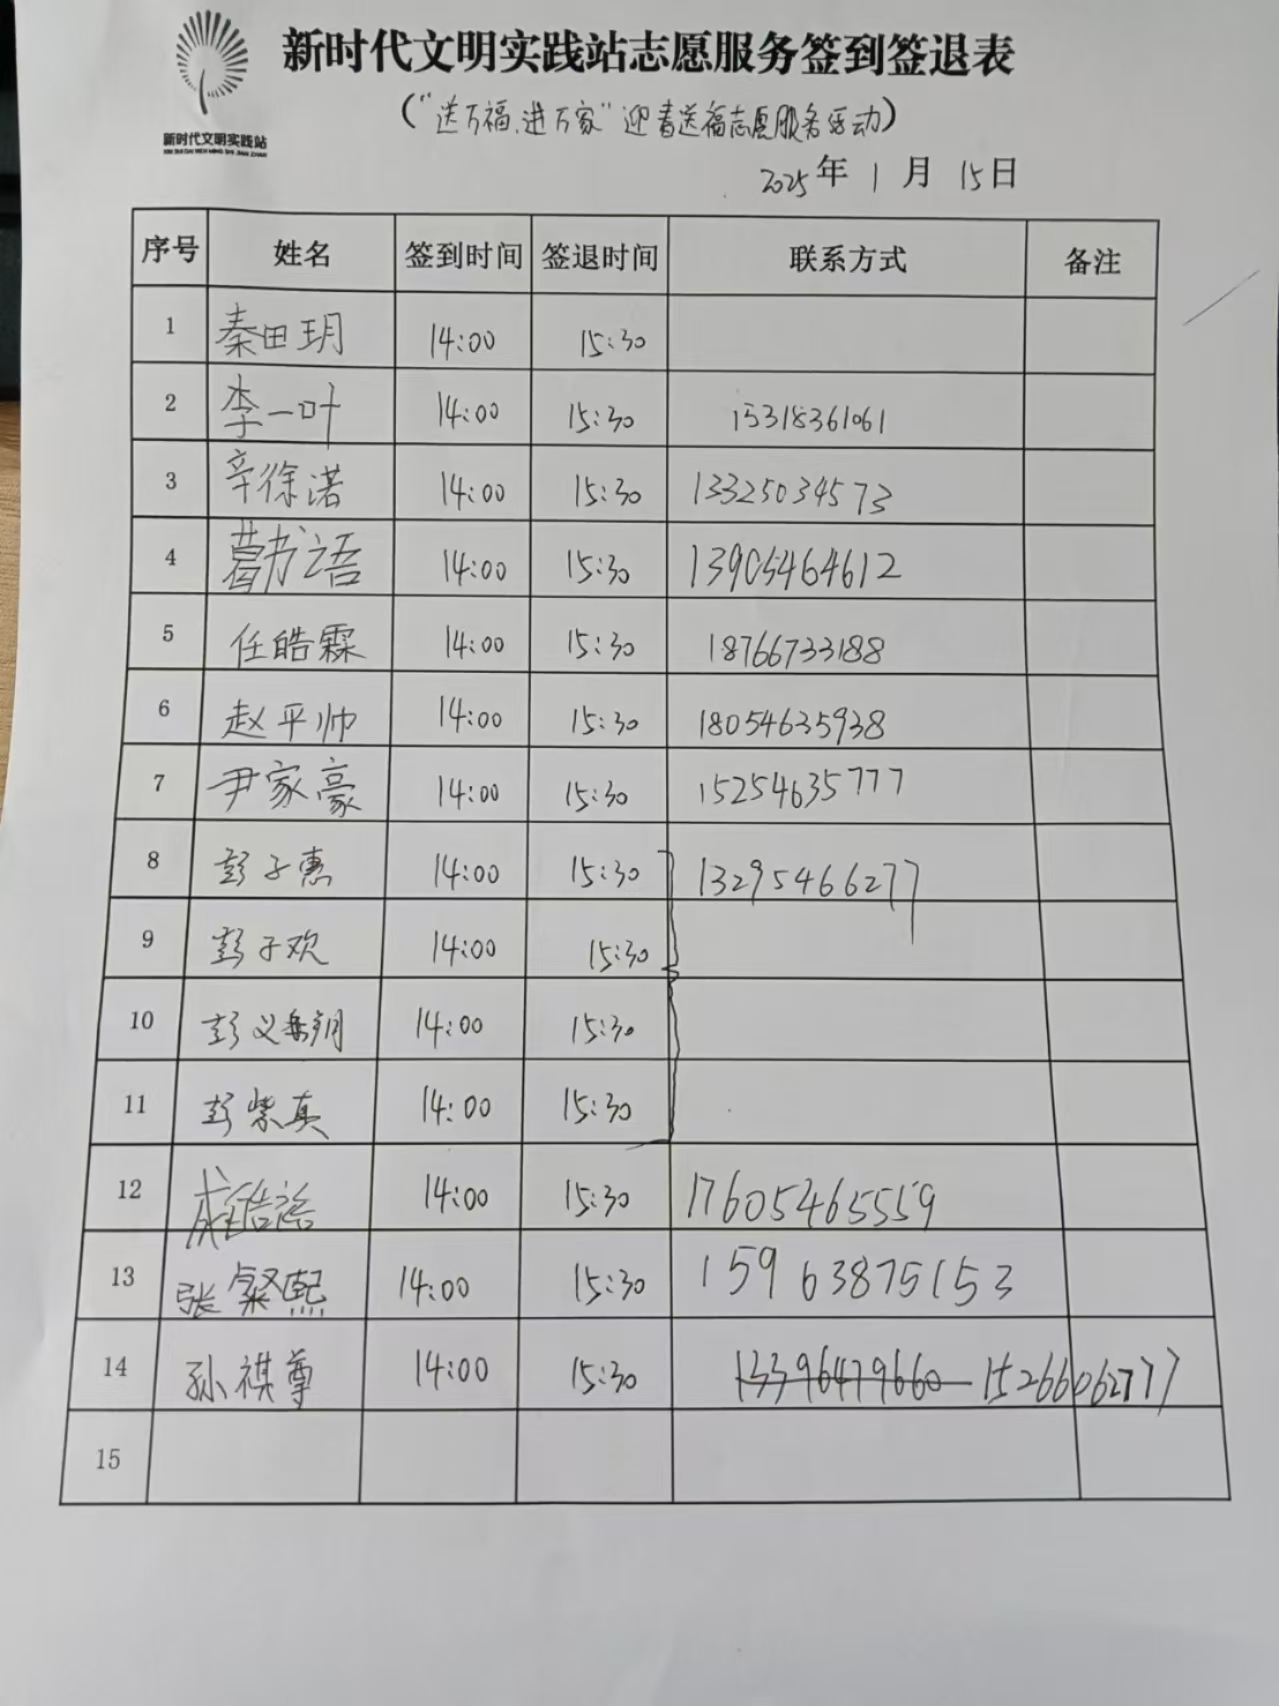 新时代文明实践站志愿服务签到签退表
("送万福、进万家"迎春送福志愿服务活动)
新时代文明实践站
XIN SHI DAI WEN MING SHI JIAN ZHAN
2025年 1 月 15日
序号 姓名 签到时间 签退时间 联系方式 备注
1 秦田玥 14:00 15:30
2 李一叶 14:00 15:30 15318361061
3 辛徐诺 14:00 15:30 13325034573
4 葛书语 14:00 15:30 13905464612
5 任皓霖 14:00 15:30 18766733188
6 赵平帅 14:00 15:30 18054635938
7 尹家豪 14:00 15:30 15254635777
8 彭子惠 14:00 15:30 13295466277
9 彭子欢 14:00 15:30
10 彭义 14:00 15:30
11 彭紫真 14:00 15:30
12 14:00 15:30 17605465559
13 张粲熙 14:00 15:30 15963875153
14 孙祺尊 14:00 15:30 13396479660 15266062777
15